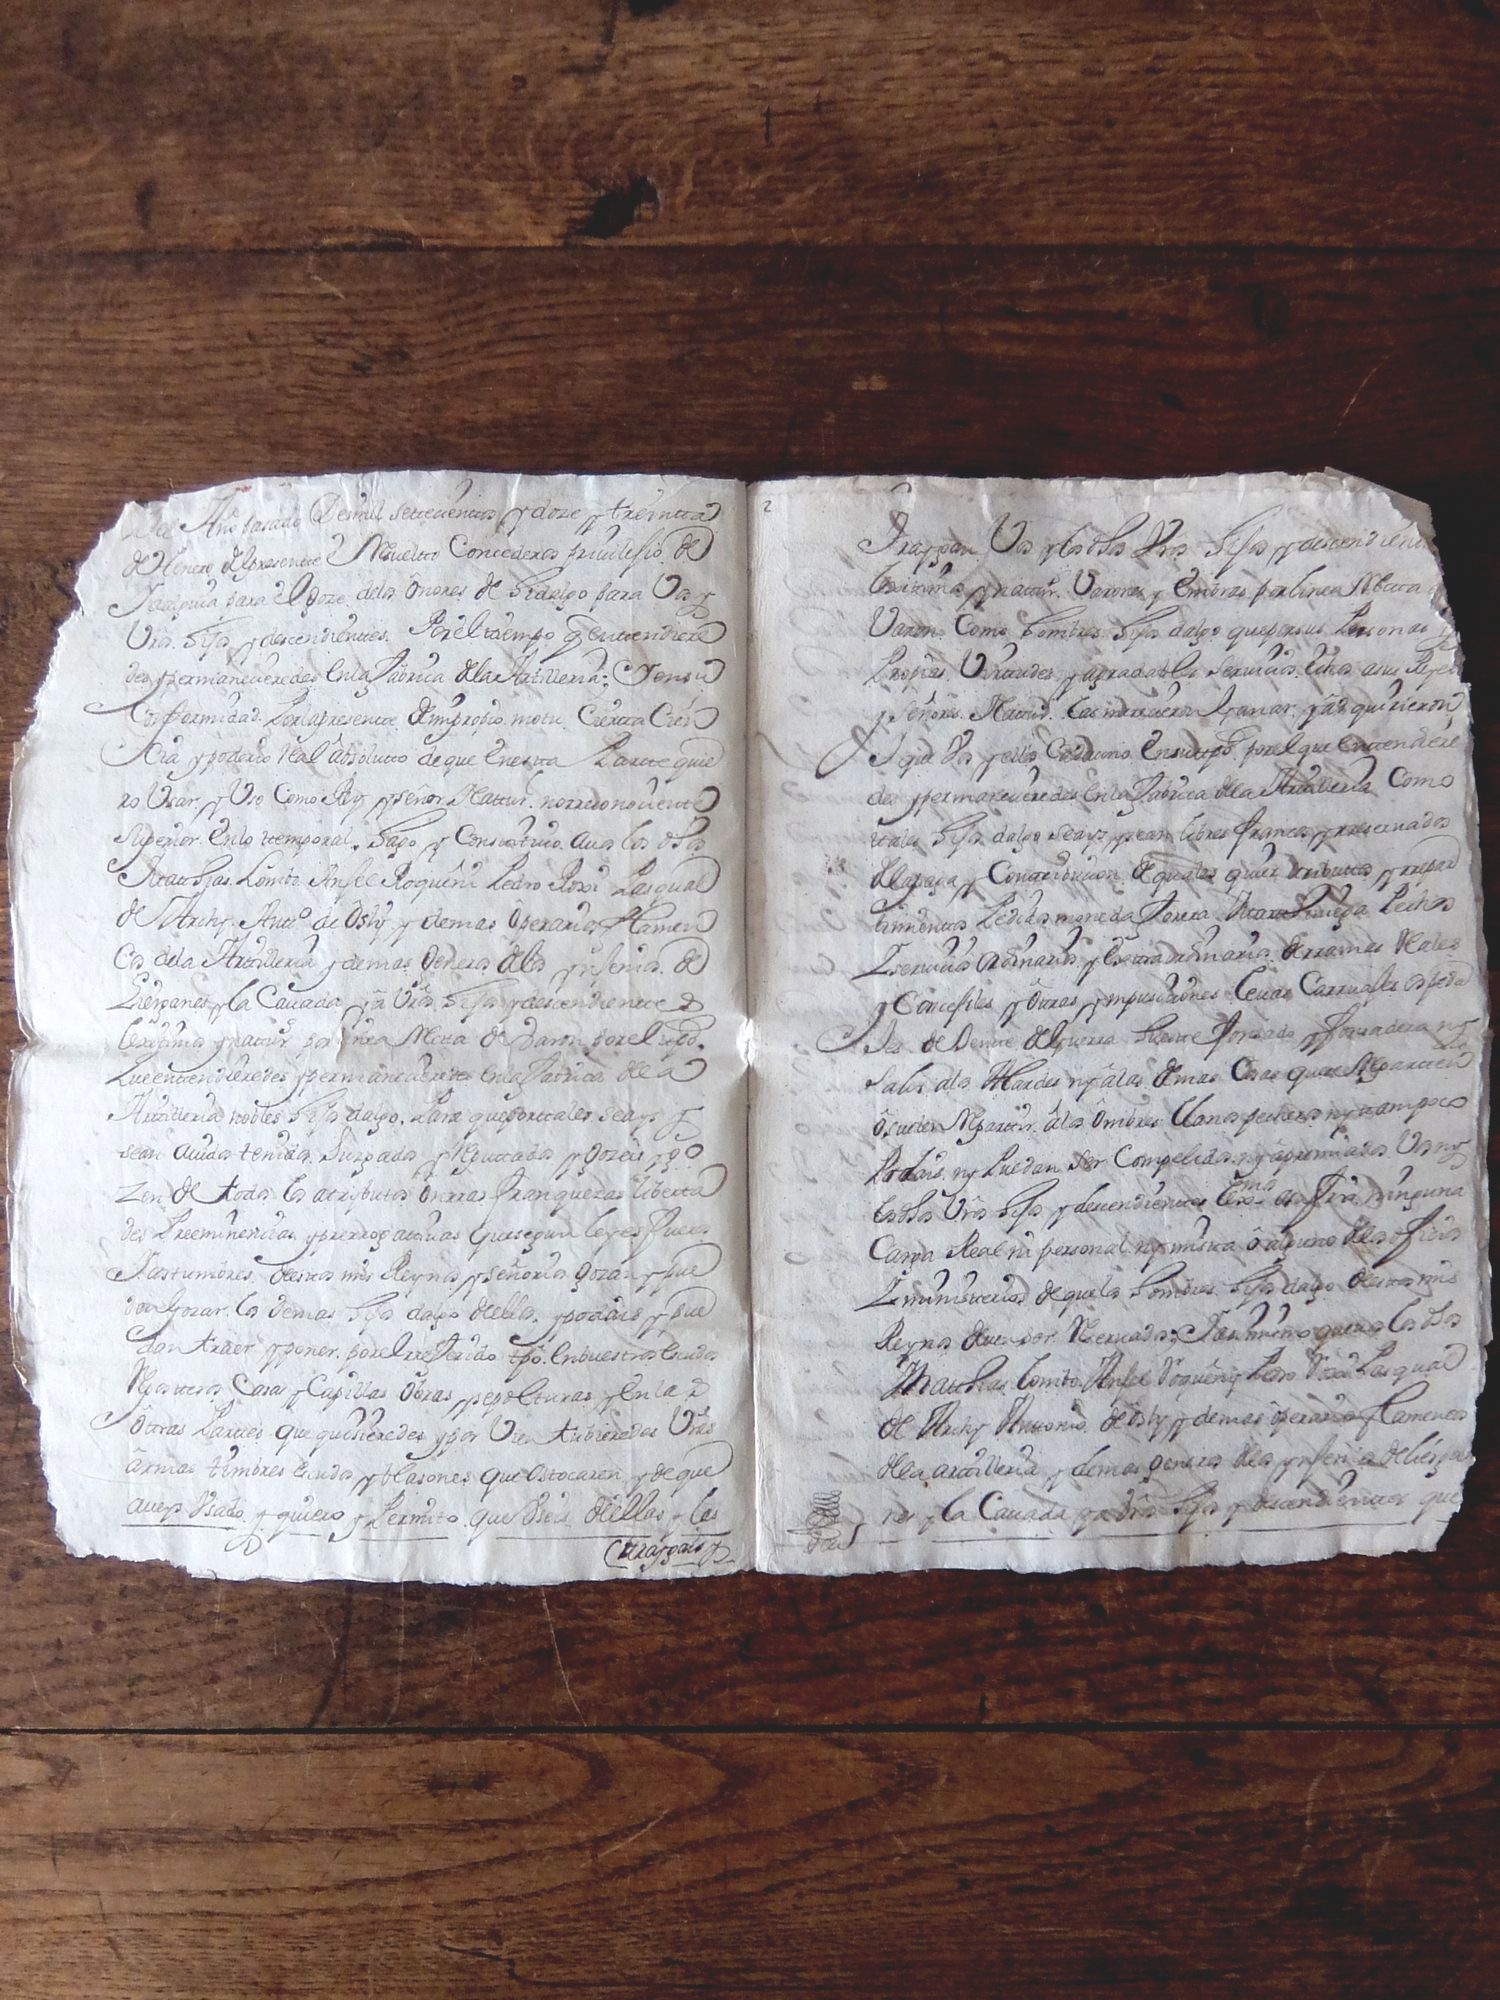 del Año pasado De mil settecientos y doze y treintta
de Henero del presente Resueltto Concederos privilesio de
para el goze de los onores de hidalgo para Vos y
Vros hijos y descendienttes. Por el tiempo q enttendiere
des y permanecieredes En la fabrica de la Artilleria; Y en su
Conformidad. Por la presente de mi propio motu Ciertta Cien
cia y poderio Real absolutto de que En esta Partte quie
ro Usar, y Uso Como Rey y señor Nattur. no rreconociente
Superior. en lo ttemporal. hago y Consttituio a uos los dhos
Matthias Lombo Ansel Roqueni Pedro Rossi Pasqual
de Archy Antto de Osly y demas operarios flamen
cos de la Artilleria y demas generos de los ynsenios de
Lierganes y la Cauada y a Vros hijos y descendientes
lexitimos y nattur por linea Recta de Varon por el tpo.
Que enttendieredes y permanecieredes en la fabrica de la
Artilleria nobles hijos dalgo. Para que por ttales seays y
sean auidos tenidos Juzgados y Reputtados y gozeis y go
zen de todos los atrybutos onrras franquezas liberta
des Preeminencias y prerrogatiuas que segun leyes fueros
Y costumbres destos mis Reynos y señorios gozan y pue
den Gozar los demas hijos dalgo de ellos. y podais y pue
dan traer y poner por el rreferido tpo. en buestros escudos
Reposteros Casas y Capillas obras y sepolturas y en las
otras Parttes que quisieredes y por Vien tubieredes Vros
armas timbres escudos y blasones que os tocaren y de que
aueys Usado y quiero y Permito que Useis de ellos y los
traygais y
2
Traygan Vos y los dhos Vros hijos y descendientes
lexitimos y nattur. Varones y embras por linea Recta de
Varon. Como hombres hijos dalgo que por sus Personas y
Propias Virtudes y agradables seruicios echos a sus Reyes
y señores Nattur. las merecieron Ganar y adquirieron
Y que Vos y ellos Cada uno en su tpo. por el que enttendiere
des y permanecieredes En la fabrica de la Artilleria Como
ttales hijos dalgo seays y sean libres francos y rreseruados
de la paga y Contribucion de quales quier tributos y rrepar
timientos Pedidos moneda forera Martiniega Pechos
Y seruicios ordinarios y Extraordinarios derramas Reales
y Concesiles y otras ymposiciones leuas Carruajes ospeda
Jes de Gente de guerra Puente Portado y Portadera ny
salir a los Alardes ny a las demas Cosas que se Reparten
o suelen Reparttir a los ombres llanos pecheros ny tampoco
Podais ny Puedan ser Compelidos ny apremiados Vos ny
los dhos Vros hijos y descendientes lexmos a seruir ninguna
Carga Real ni personal ny mixtta o alguno de los oficios
Y ministerios de que los hombres hijos dalgo destos mis
Reynos deuen ser Reseruados; Y asi mismo quiero los dhos
Matthias Lombo Ansel Roqueny Pedro Rossi Pasqual
de Archy Anttonio de Osly y demas operarios flamencos
de la artilleria y demas generos de los ynsenios de Lierga
nes y la Cauada y a Vros hijos y descendienttes que